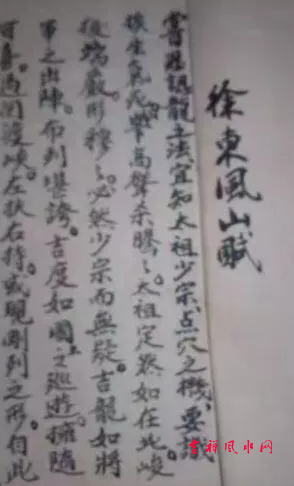 徐東風山賦
嘗思認龍之法宜知太祖少宗点穴之機要識
生氣死。舉高聳杀騰々太祖定然如在此峻
後端嚴。形穆々必然少宗而無疑。吉龍如將
軍之出陣。布列堪誇。吉度如國主之巡遊。擁隨
可喜。過関渡峽。左扶右持。或現開列之形。自此
吉祥風水网